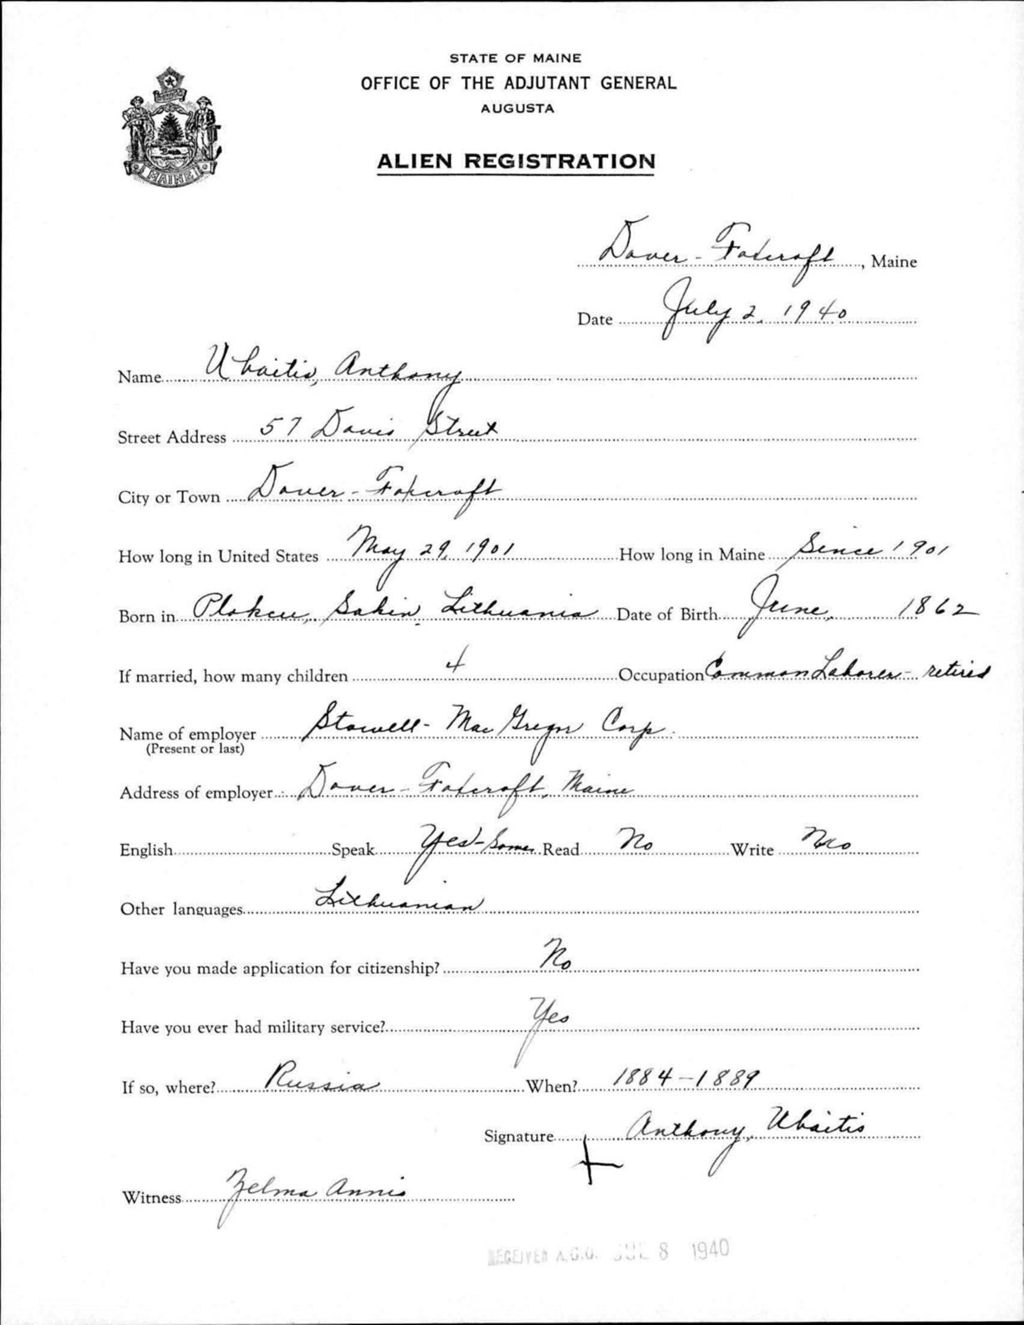 STATE OF MAINE
OFFICE OF THE ADJUTANT GENERAL
AUGUSTA
MAINE
ALIEN REGISTRATION
Dover-Foxcroft, Maine
Date July 2, 1940
Name Ubaitis, Anthony
Street Address 57 Davis Street
City or Town Dover-Foxcroft
How long in United States May 29, 1901 How long in Maine Since 1901
Born in Lithuania Date of Birth June, 1862
If married, how many children 4 Occupation Common Laborer - retired
Name of employer Stowell-MacGregor Corp.
(Present or last)
Address of employer Dover-Foxcroft, Maine
English Speak Yes-Some Read No Write No
Other languages Lithuanian
Have you made application for citizenship? No
Have you ever had military service? Yes
If so, where? Russia When? 1884-1889
Signature Anthony Ubaitis
Witness Zelma Annis
RECEIVED A.G.O. JUL 8 1940